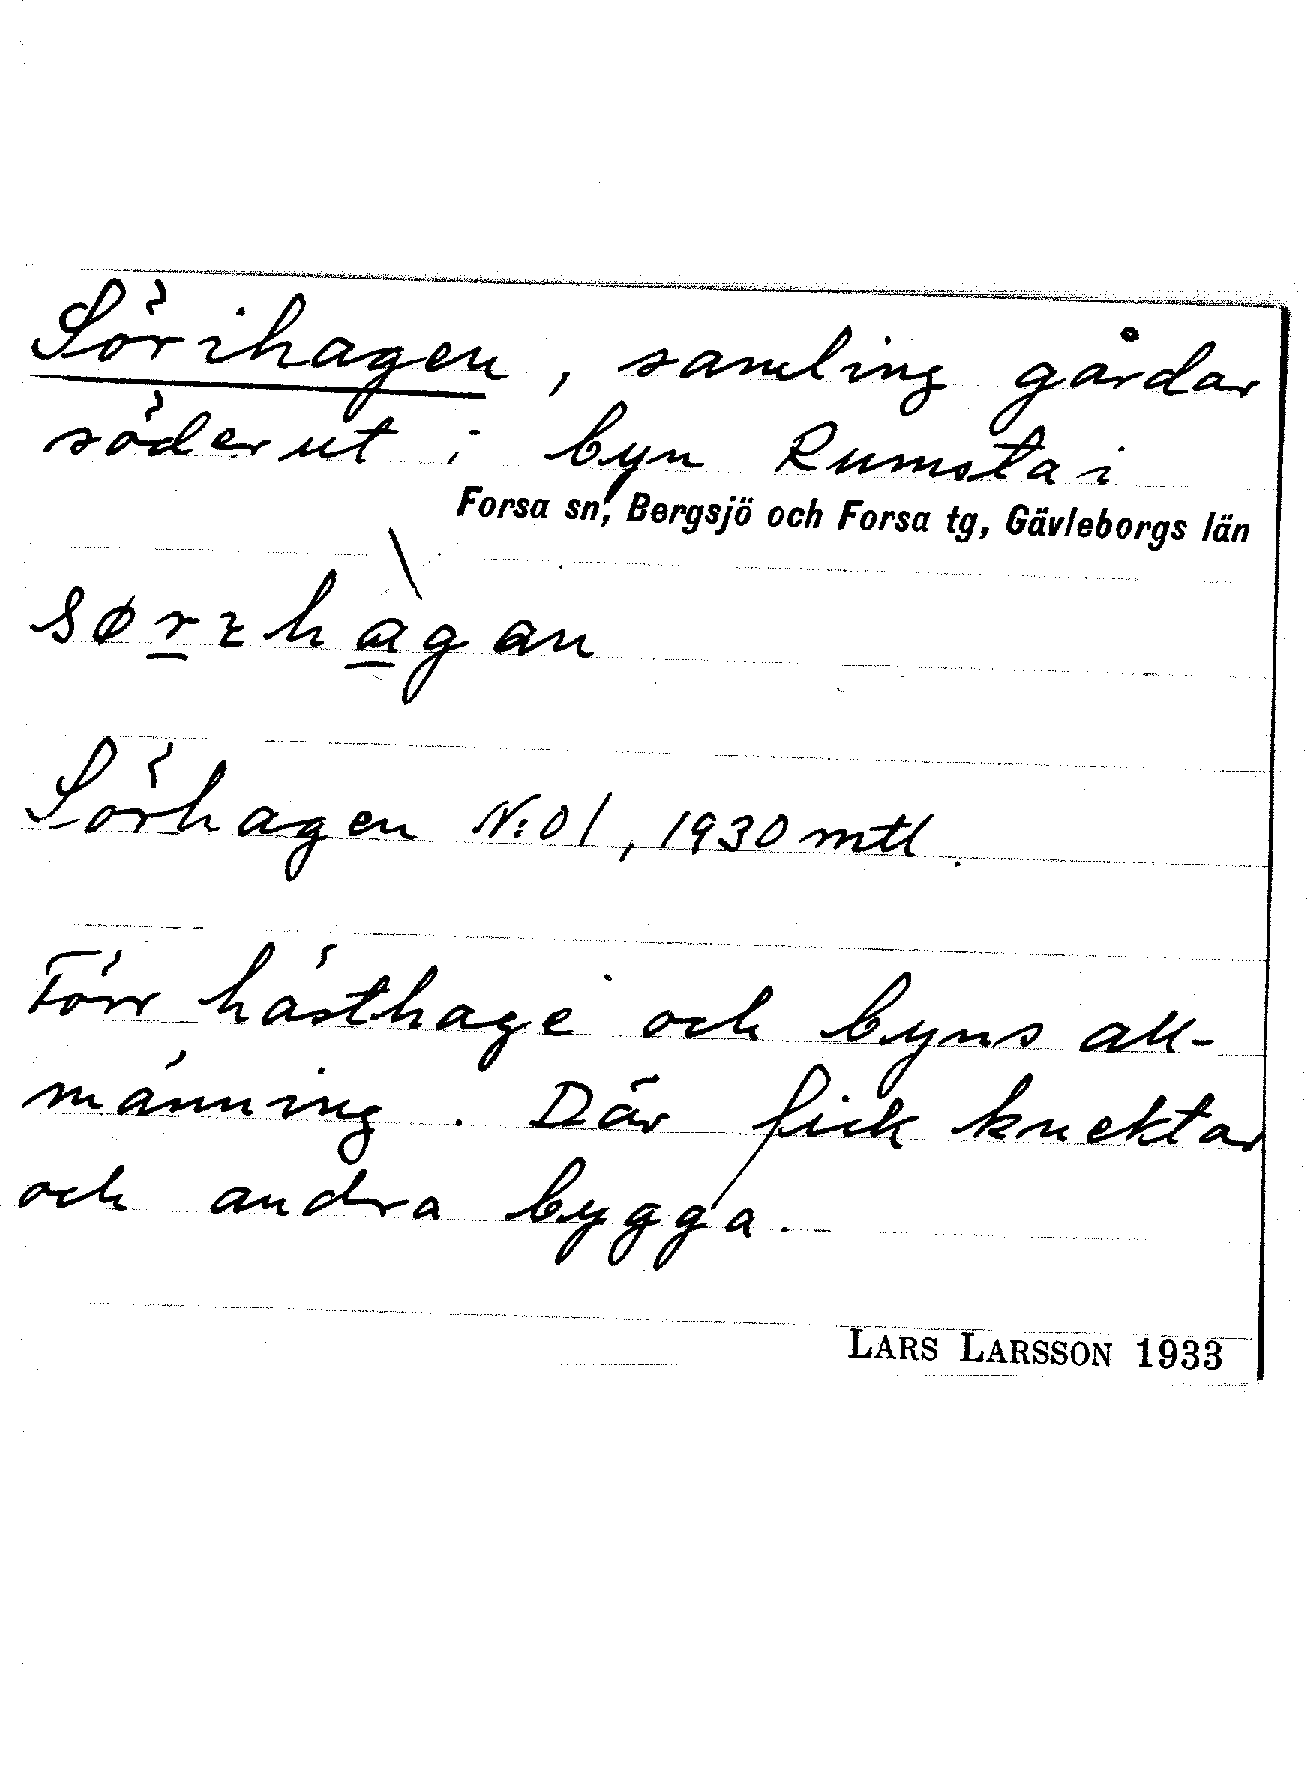 Sörihagen, samling gårdar
söderut i byn Rumsta i
Forsa sn, Bergsjö och Forsa tg, Gävleborgs län
sørɩhàgan
Sörhagen No 1, 1930 mtl.
Förr hästhage och byns all-
männing. Där fick knektar
och andra bygga.
LARS LARSSON 1933